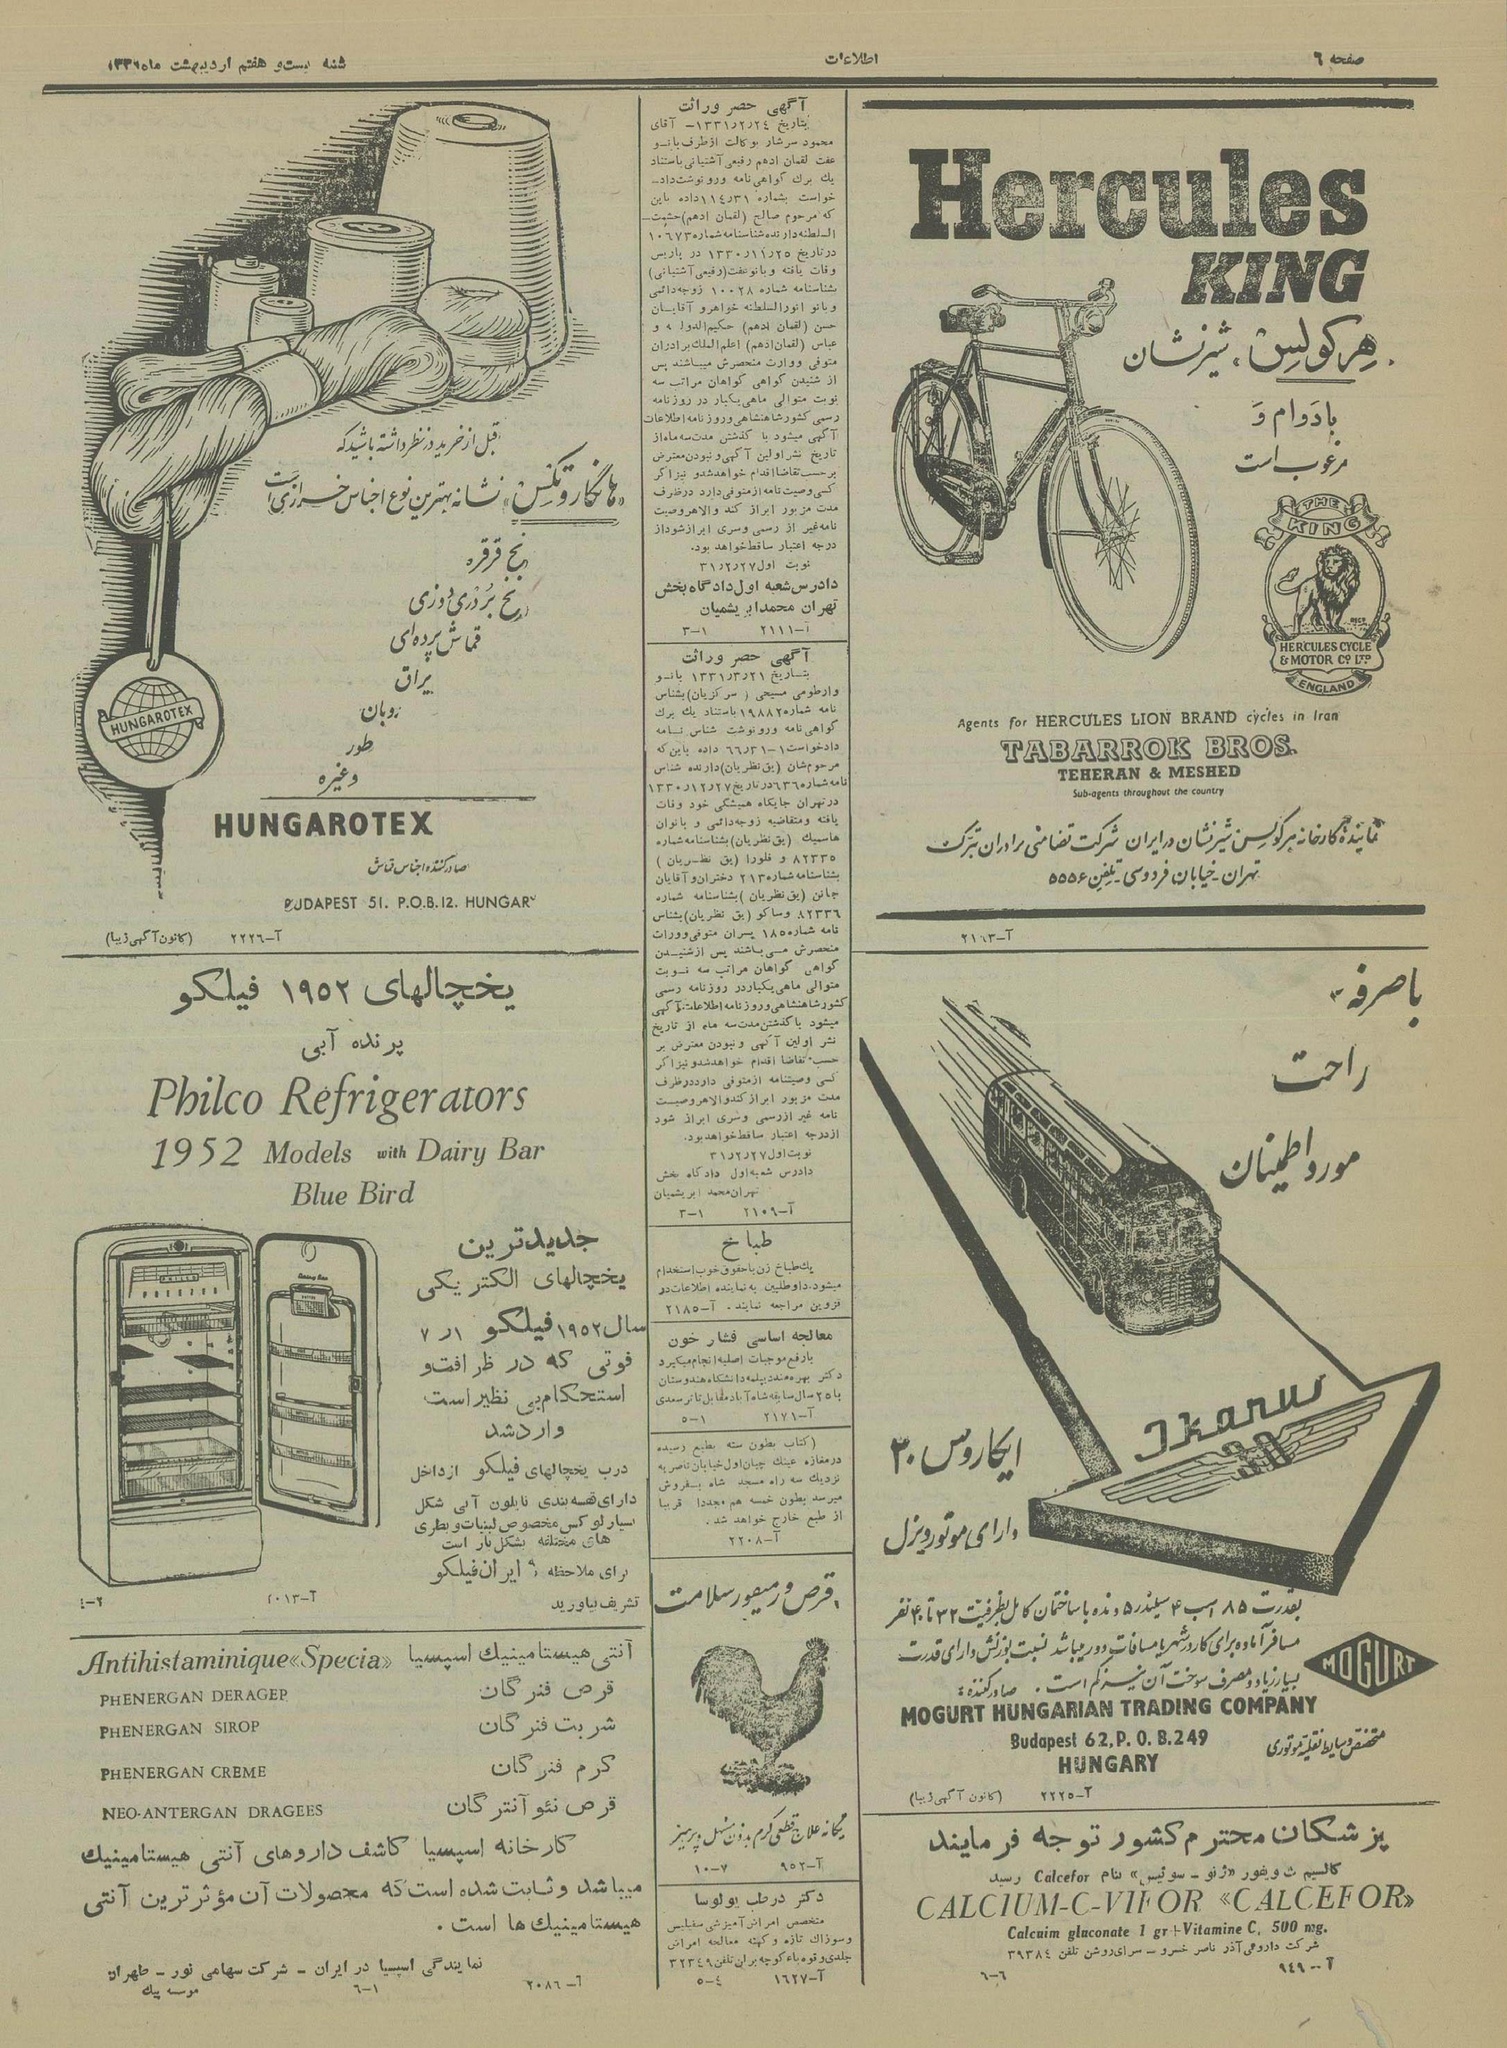 صفحه ٦
اطلاعات
شنبه بیست و هفتم اردیبهشت ماه ۱۳۳۱
Hercules
KING
«هرکولس» شیرنشان
بادوام و
مرغوب است
THE
KING
HERCULES CYCLE
& MOTOR CO LTD
ENGLAND
Agents for HERCULES LION BRAND cycles in Iran
TABARROK BROS.
TEHERAN & MESHED
Sub-agents throughout the country
نماینده کارخانه هرکولس شیرنشان در ایران شرکت تضامنی برادران تبرک
تهران - خیابان فردوسی - تلفن ۵۵۵۶
آ-۲۱۶۳
با صرفه
راحت
مورد اطمینان
Ikarus
ایکاروس ۳۰
دارای موتور دیزل
بقدرت ۸۵ اسب ۴ سیلندر ۵ دنده با ساختمان کامل بظرفیت ۳۲ تا ۴۰ نفر
مسافر آماده برای کار در شهر یا مسافات دور میباشد نسبت بوزنش دارای قدرت
بسیار زیاد و مصرف سوخت آن نیز کم است. صادرکننده:
MOGURT
MOGURT HUNGARIAN TRADING COMPANY
Budapest 62, P. O. B. 249
HUNGARY
متخصص وسایط نقلیه موتوری
آ-۲۲۲۵ (کانون آگهی زیبا)
پزشکان محترم کشور توجه فرمایند
کالسیم ث ویفور «ژنو - سوئیس» بنام Calcefor رسید
CALCIUM-C-VIFOR «CALCEFOR»
Calcuim gluconate 1 gr+Vitamine C, 500 mg.
شرکت داروئی آذر ناصر خسرو - سرای روشن تلفن ۳۹۳۸٤
آ-۹٤۹ ٦-٦
آگهی حصر وراثت
بتاریخ ۱۳۳۱٫۲٫۲٤- آقای
محمود سرشار بوکالت از طرف بانو
عفت لقمان ادهم رفیعی آشتیانی باستناد
یك برك گواهی نامه ورونوشت داد-
خواست بشماره ۱۱٤٫۳۱ داده باین
که مرحوم صالح (لقمان ادهم) حشمت-
السلطنه دارنده شناسنامه شماره ۱۰٦۷۳
در تاریخ ۱۳۳۰٫۱۱٫۲۵ در پاریس
وفات یافته و بانو عفت (رفیعی آشتیانی)
بشناسنامه شماره ۱۰۰۲۸ زوجه دائمی
و بانو انور السلطنه خواهر و آقایان
حسن (لقمان ادهم) حکیم الدوله و
عباس (لقمان ادهم) اعلم الملك برادران
متوفی ووارث منحصرش میباشند پس
از شنیدن گواهی گواهان مراتب سه
نوبت متوالی ماهی یکبار در روزنامه
رسمی کشور شاهنشاهی و روزنامه اطلاعات
آگهی میشود با گذشتن مدت سه ماه از
تاریخ نشر اولین آگهی و نبودن معترض
بر حسب تقاضا اقدام خواهد شد و نیز اگر
کسی وصیت نامه از متوفی دارد در ظرف
مدت مزبور ابراز کند والا هر وصیت
نامه غیر از رسمی و سری ابراز شود از
درجه اعتبار ساقط خواهد بود.
نوبت اول ۳۱٫۲٫۲۷
دادرس شعبه اول دادگاه بخش
تهران محمد ابریشمیان
آ-۲۱۱۱ ۱-۳
آگهی حصر وراثت
بتاریخ ۱۳۳۱٫۳٫۲۱ بانو
وارطومی مسیحی (سرکزیان) بشناس
نامه شماره ۱۹۸۸۲ باستناد یك برك
گواهی نامه ورونوشت شناس نامه
دادخواست ۱-٦٦٫۳۱ داده باین که
مرحوم شان (یق نظریان) دارنده شناس
نامه شماره ٦۳٦ در تاریخ ۱۳۳۰٫۱۲٫۲۷
در تهران جایگاه همیشگی خود وفات
یافته ومتقاضیه زوجه دائمی و بانوان
هاسمیك (یق نظریان) بشناسنامه شماره
۸۲۳۳۵ و فلورا (یق نظریان)
بشناسنامه شماره ۲۱۳ دختران و آقایان
جانن (یق نظریان) بشناسنامه شماره
۸۲۳۳٦ وساکو (یق نظریان) بشناس
نامه شماره ۱۸۵ پسران متوفی وورات
منحصرش می باشند پس از شنیدن
گواهی گواهان مراتب سه نوبت
متوالی ماهی یکبار در روزنامه رسمی
کشور شاهنشاهی و روزنامه اطلاعات آگهی
میشود با گذشتن مدت سه ماه از تاریخ
نشر اولین آگهی و نبودن معترض بر
حسب تقاضا اقدام خواهد شد و نیز اگر
کسی وصیتنامه از متوفی دارد در ظرف
مدت مزبور ابراز کند والا هر وصیت
نامه غیر از رسمی وسری ابراز شود
از درجه اعتبار ساقط خواهد بود.
نوبت اول ۳۱٫۲٫۲۷
دادرس شعبه اول دادگاه بخش
تهران محمد ابریشمیان
آ-۲۱۰۹ ۱-۳
طباخ
یك طباخ زن با حقوق خوب استخدام
میشود. داوطلبین به نماینده اطلاعات در
قزوین مراجعه نمایند. آ-۲۱۸۵
معالجه اساسی فشار خون
با رفع موجبات اصلیه انجام میگیرد
دکتر بهره مند دیپلمه دانشگاه هندوستان
با ۲۵ سال سابقه شاه آباد مقابل تاتر سعدی
آ-۲۱۷۱ ۱-۵
(کتاب بطون سته بطبع رسیده
در مغازه عینك چیان اول خیابان ناصریه
نزدیك سه راه مسجد شاه بفروش
میرسد بطون خمسه هم مجددا قریبا
از طبع خارج خواهد شد.
آ-۲۲۰۸
قرص ورمیفور سلامت
یگانه علاج قطعی کرم بدون مسهل و پرهیز
آ-۹۵۲ ۷-۱۰
دکتر در طب بولوسا
متخصص امراض آمیزشی سفلیس
وسوزاك تازه و کهنه معالجه امراض
جلدی وقوه باء کوچه بران تلفن ۳۲۳٤۹
آ-۱٦۲۷ ٤-۵
قبل از خرید در نظر داشته باشید که
«هانگاروتکس» نشانه بهترین نوع اجناس خرازی است
نخ قرقره
نخ بردری دوزی
قماش پرده ای
یراق
روبان
طور
وغیره
HUNGAROTEX
HUNGAROTEX
صادرکننده اجناس قماش
BUDAPEST 51. P.O.B.12. HUNGARY
آ-۲۲۲٦ (کانون آگهی زیبا)
یخچالهای ۱۹۵۲ فیلکو
پرنده آبی
Philco Refrigerators
1952 Models with Dairy Bar
Blue Bird
جدیدترین
یخچالهای الکتریکی
سال ۱۹۵۲ فیلکو ۷٫۱
فوتی که در ظرافت و
استحکام بی نظیر است
وارد شد
درب یخچالهای فیلکو از داخل
دارای قفسه بندی نایلون آبی شکل
بسیار لوکس مخصوص لبنیات و بطری
های مختلفه بشکل بار است
برای ملاحظه به ایران فیلکو
تشریف بیاورید
آ-۲۰۱۳ ۲-٤
Antihistaminique «Specia» آنتی هیستامینیك اسپسیا
PHENERGAN DERAGEP قرص فنرگان
PHENERGAN SIROP شربت فنرگان
PHENERGAN CREME کرم فنرگان
NEO-ANTERGAN DRAGEES قرص نئو آنترگان
کارخانه اسپسیا کاشف داروهای آنتی هیستامینیك
میباشد و ثابت شده است که محصولات آن مؤثرترین آنتی
هیستامینیك ها است.
نمایندگی اسپسیا در ایران - شرکت سهامی نور - طهران
آ-۲۰۸٦ ۱-٦ موسسه پیك